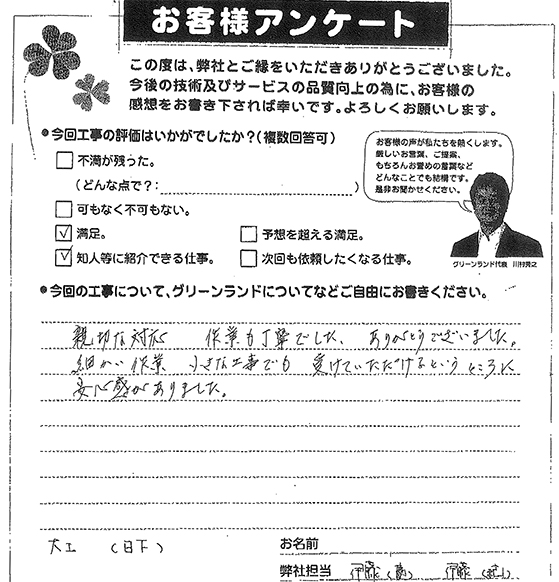 お客様アンケート
この度は、弊社とご縁をいただきありがとうございました。
今後の技術及びサービスの品質向上の為に、お客様の
感想をお書き下されば幸いです。よろしくお願いします。
●今回工事の評価はいかがでしたか?(複数回答可)
不満が残った。
(どんな点で?: )
可もなく不可もない。
満足。
予想を超える満足。
知人等に紹介できる仕事。
次回も依頼したくなる仕事。
お客様の声が私たちを熱くします。
厳しいお言葉、ご提案、
もちろんお誉めの言葉など
どんなことでも結構です。
是非お聞かせください。
グリーンランド代表
●今回の工事について、グリーンランドについてなどご自由にお書きください。
親切な対応 作業も丁寧でした、ありがとうございました。
細かい作業 小さな工事でも 受けていただけるという ところに
安心感がありました。
大工 (日下)
お名前
弊社担当 伊藤 伊藤